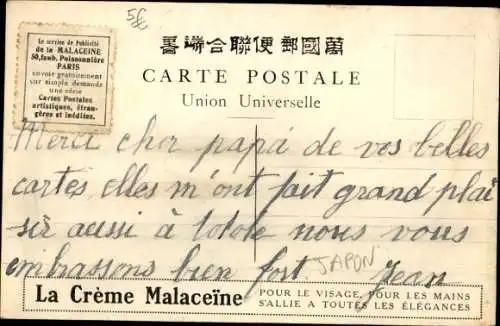 5£
Le service de Publicité
de la MALACEINE
50, faub. Poissonnière
PARIS
envoie gratuitement
sur simple demande
une série
Cartes Postales
artistiques, étran-
gères et inédites.
書端合聯便郵國萬
CARTE POSTALE
Union Universelle
Merci cher papa de vos belles
cartes, elles m'ont fait grand plai
sir aussi à totote nous vous
embrassons bien fort Jean
JAPON
La Crème Malaceïne
POUR LE VISAGE, POUR LES MAINS
S'ALLIE A TOUTES LES ÉLÉGANCES